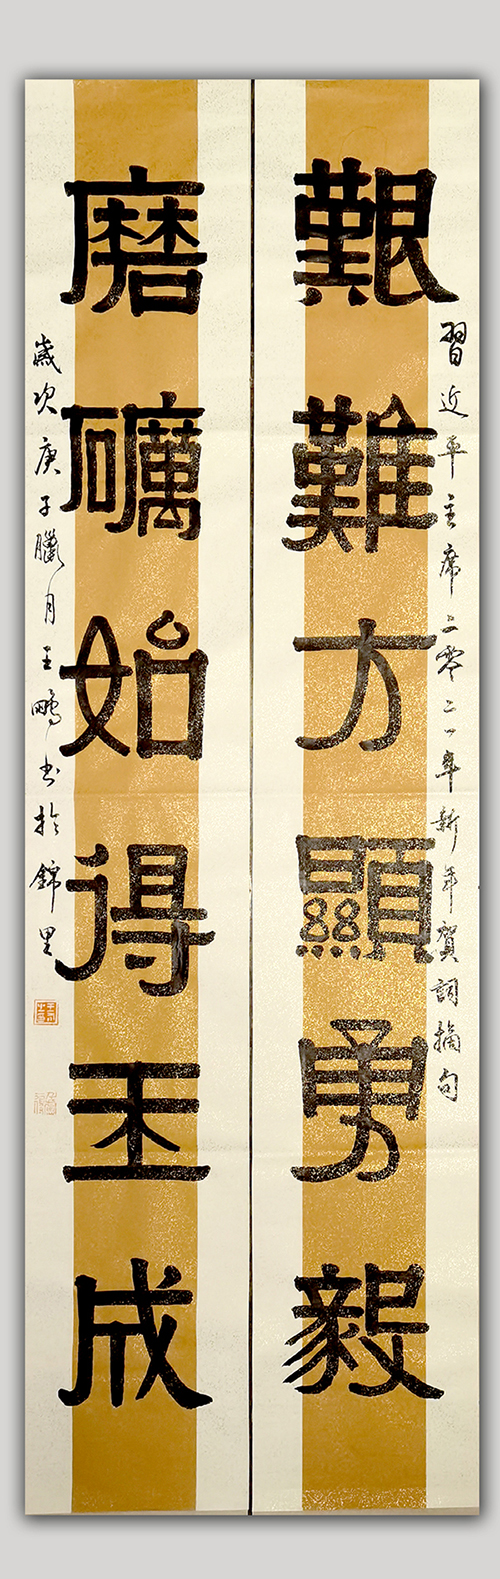 習近平主席二零二一年新年賀詞摘句
艱難方顯勇毅
磨礪始得玉成
歲次庚子臘月王鵬书於錦里